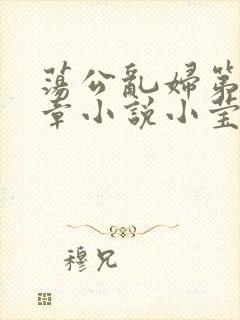 蕩公亂婦第
章小說小莹
穆兄